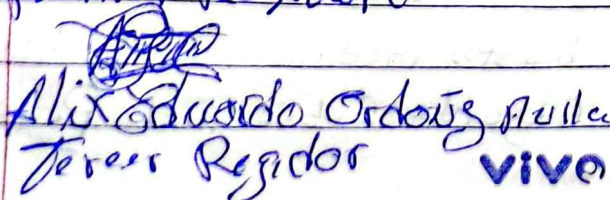 Alix Eduardo Ordoñz Avila
Tercer Regidor
vive